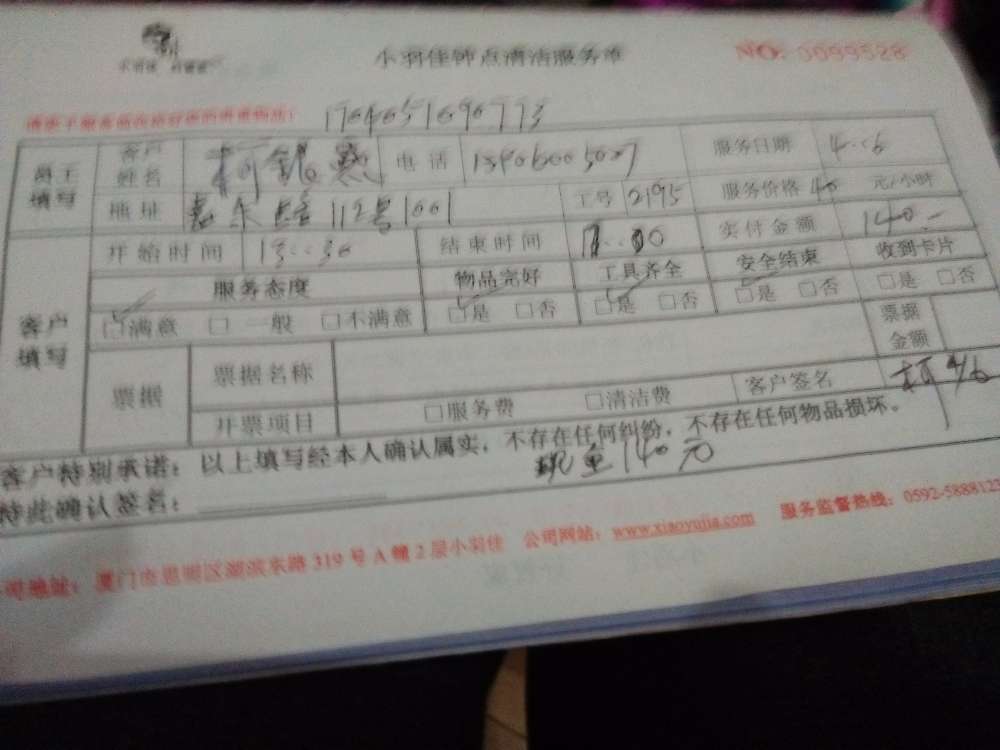 小羽佳钟点清洁服务单 NO: 0099528
1704051690773
员工填写 客户姓名 柯 电话 服务日期 4..6
地址 112号1001 工号 2195 服务价格 40 元/小时
开始时间 13..30 结束时间 17..00 实付金额 140.-
服务态度 物品完好 工具齐全 安全结束 收到卡片
客户填写 □满意 □一般 □不满意 □是 □否 □是 □否 □是 □否 □是 □否
票据 票据名称 票据金额
开票项目 □服务费 □清洁费 客户签名 柯 4/6
客户特别承诺：以上填写经本人确认属实，不存在任何纠纷，不存在任何物品损坏。
特此确认签名： 现金140元
司地址：厦门市思明区湖滨东路319号A幢2层小羽佳 公司网站：www.xiaoyujia.com 服务监督热线：0592-5888123